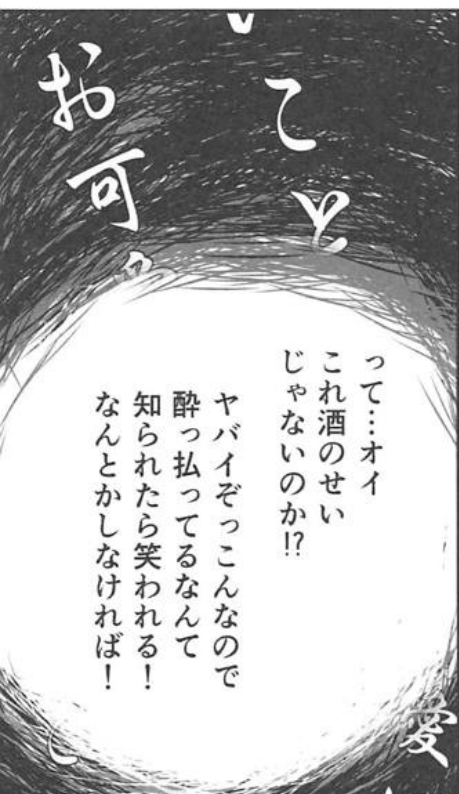 こと
お可
って…オイ
これ酒のせい
じゃないのか!?
ヤバイぞっこんなので
酔っ払ってるなんて
知られたら笑われる！
なんとかしなければ！
愛
し